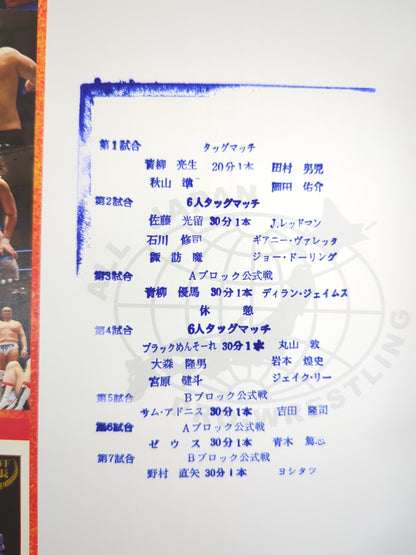 第1試合 タッグマッチ
青柳 亮生 20分1本 田村 男児
秋山 準 岡田 佑介
第2試合 6人タッグマッチ
佐藤 光留 30分1本 J.レッドマン
石川 修司 ギアニー・ヴァレッタ
諏訪魔 ジョー・ドーリング
第3試合 Aブロック公式戦
青柳 優馬 30分1本 ディラン・ジェイムス
休憩
第4試合 6人タッグマッチ
ブラックめんそーれ 30分1本 丸山 敦
大森 隆男 岩本 煌史
宮原 健斗 ジェイク・リー
第5試合 Bブロック公式戦
サム・アドニス 30分1本 吉田 隆司
第6試合 Aブロック公式戦
ゼウス 30分1本 青木 篤志
第7試合 Bブロック公式戦
野村 直矢 30分1本 ヨシタツ
ALL JAPAN PRO WRESTLING